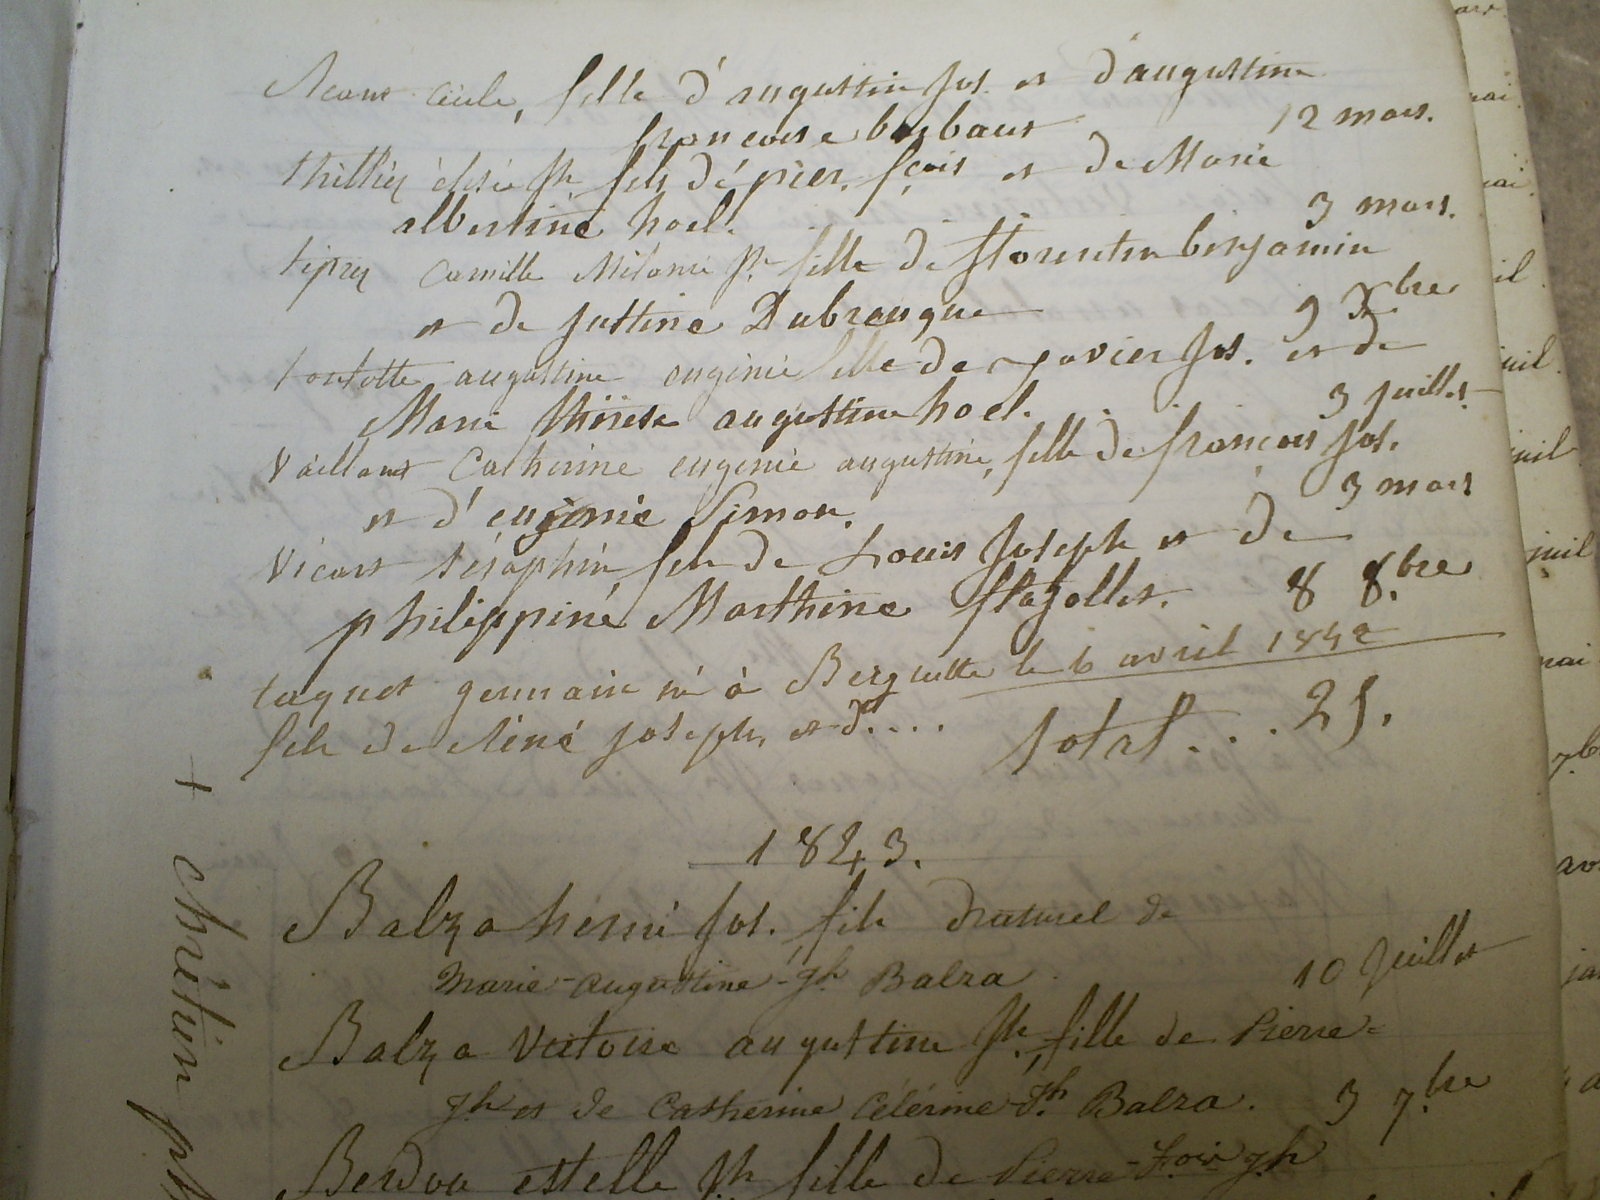 cécile, fille d'augustin jos. et d'augustine
francoise barbaut 12 mars.
thilliez désiré jh fils de pier. fçois et de Marie
albertine hoel. 3 mars.
tiprez Camille Mélanie jh fille de florentin benjamin
et de justine Dubreuque 9 Xbre
toutotte augustine eugénie fille de xavier jos. et de
Marie thérèse augustine hoel. 3 juillet
Vaillant Catherine eugenie augustine, fille de francois jos.
et d'eugénie Simon. 3 mars
Vicart séraphin fils de Louis joseph et de
philippine Marthine flajollet. 8 8.bre
taquet germain né à Berguette le 6 avril 1842
fils de réné joseph, et d....
total... 25.
1843.
Balza henri jos. fils naturel de
Marie-augustine-jh. Balza 10 juillet
Balza Victoire augustine jh. fille de Pierre=
jh et de Catherine Célérine-jh. Balza. 3 7.bre
estelle jh fille de Pierre-f.ois jh
+ chrétien